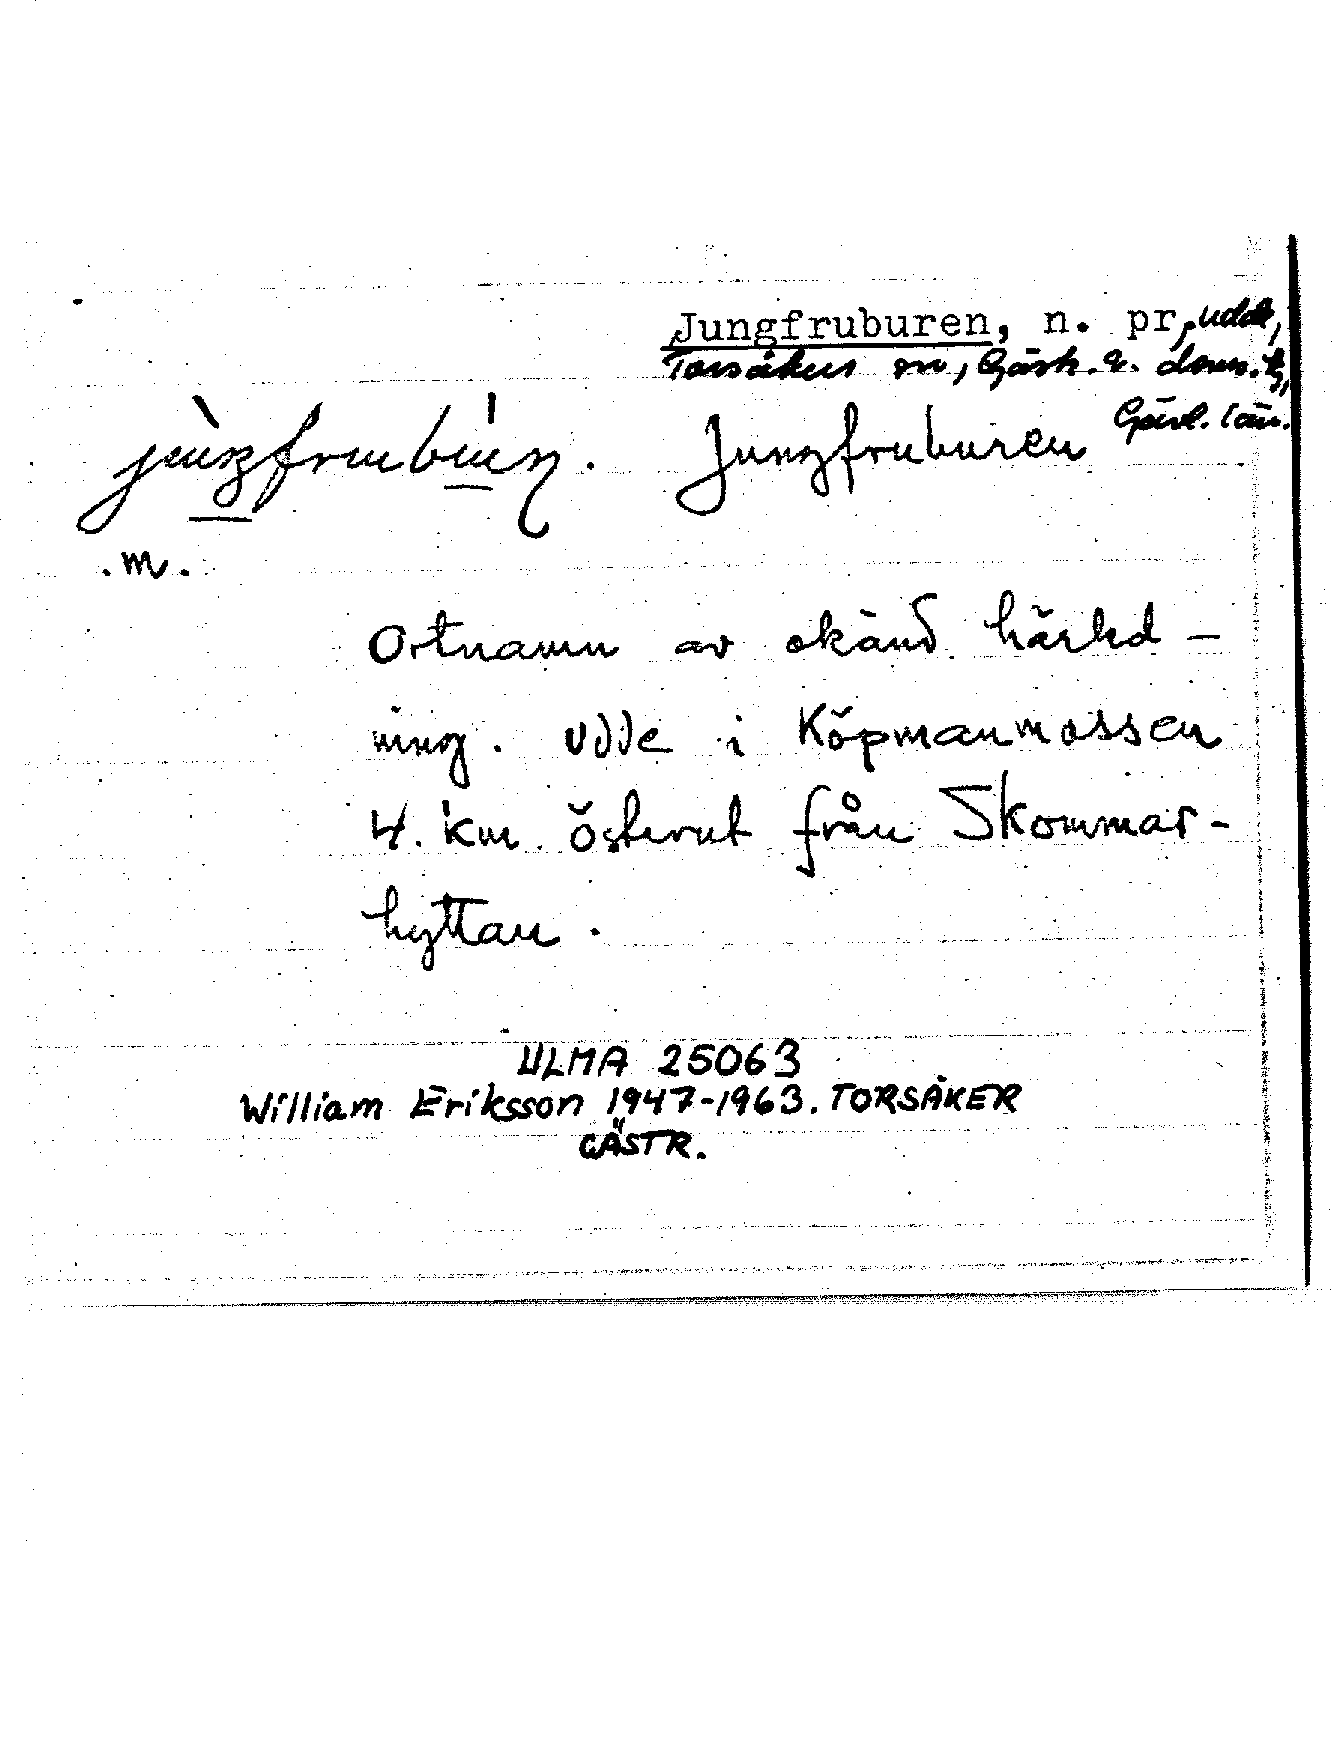 Jungfruburen, n. pr, udde,
Torsåkers sn, Gästr. ö. doms. tg,
Gävl. län.
Jungfruburen
.m.
Ortnamn av okänd härled-
ning. Udde i Köpmanmossen
4. km österut från Skommar-
hyttan.
ULMA 25063
William Eriksson 1947-1963. TORSÅKER
GÄSTR.